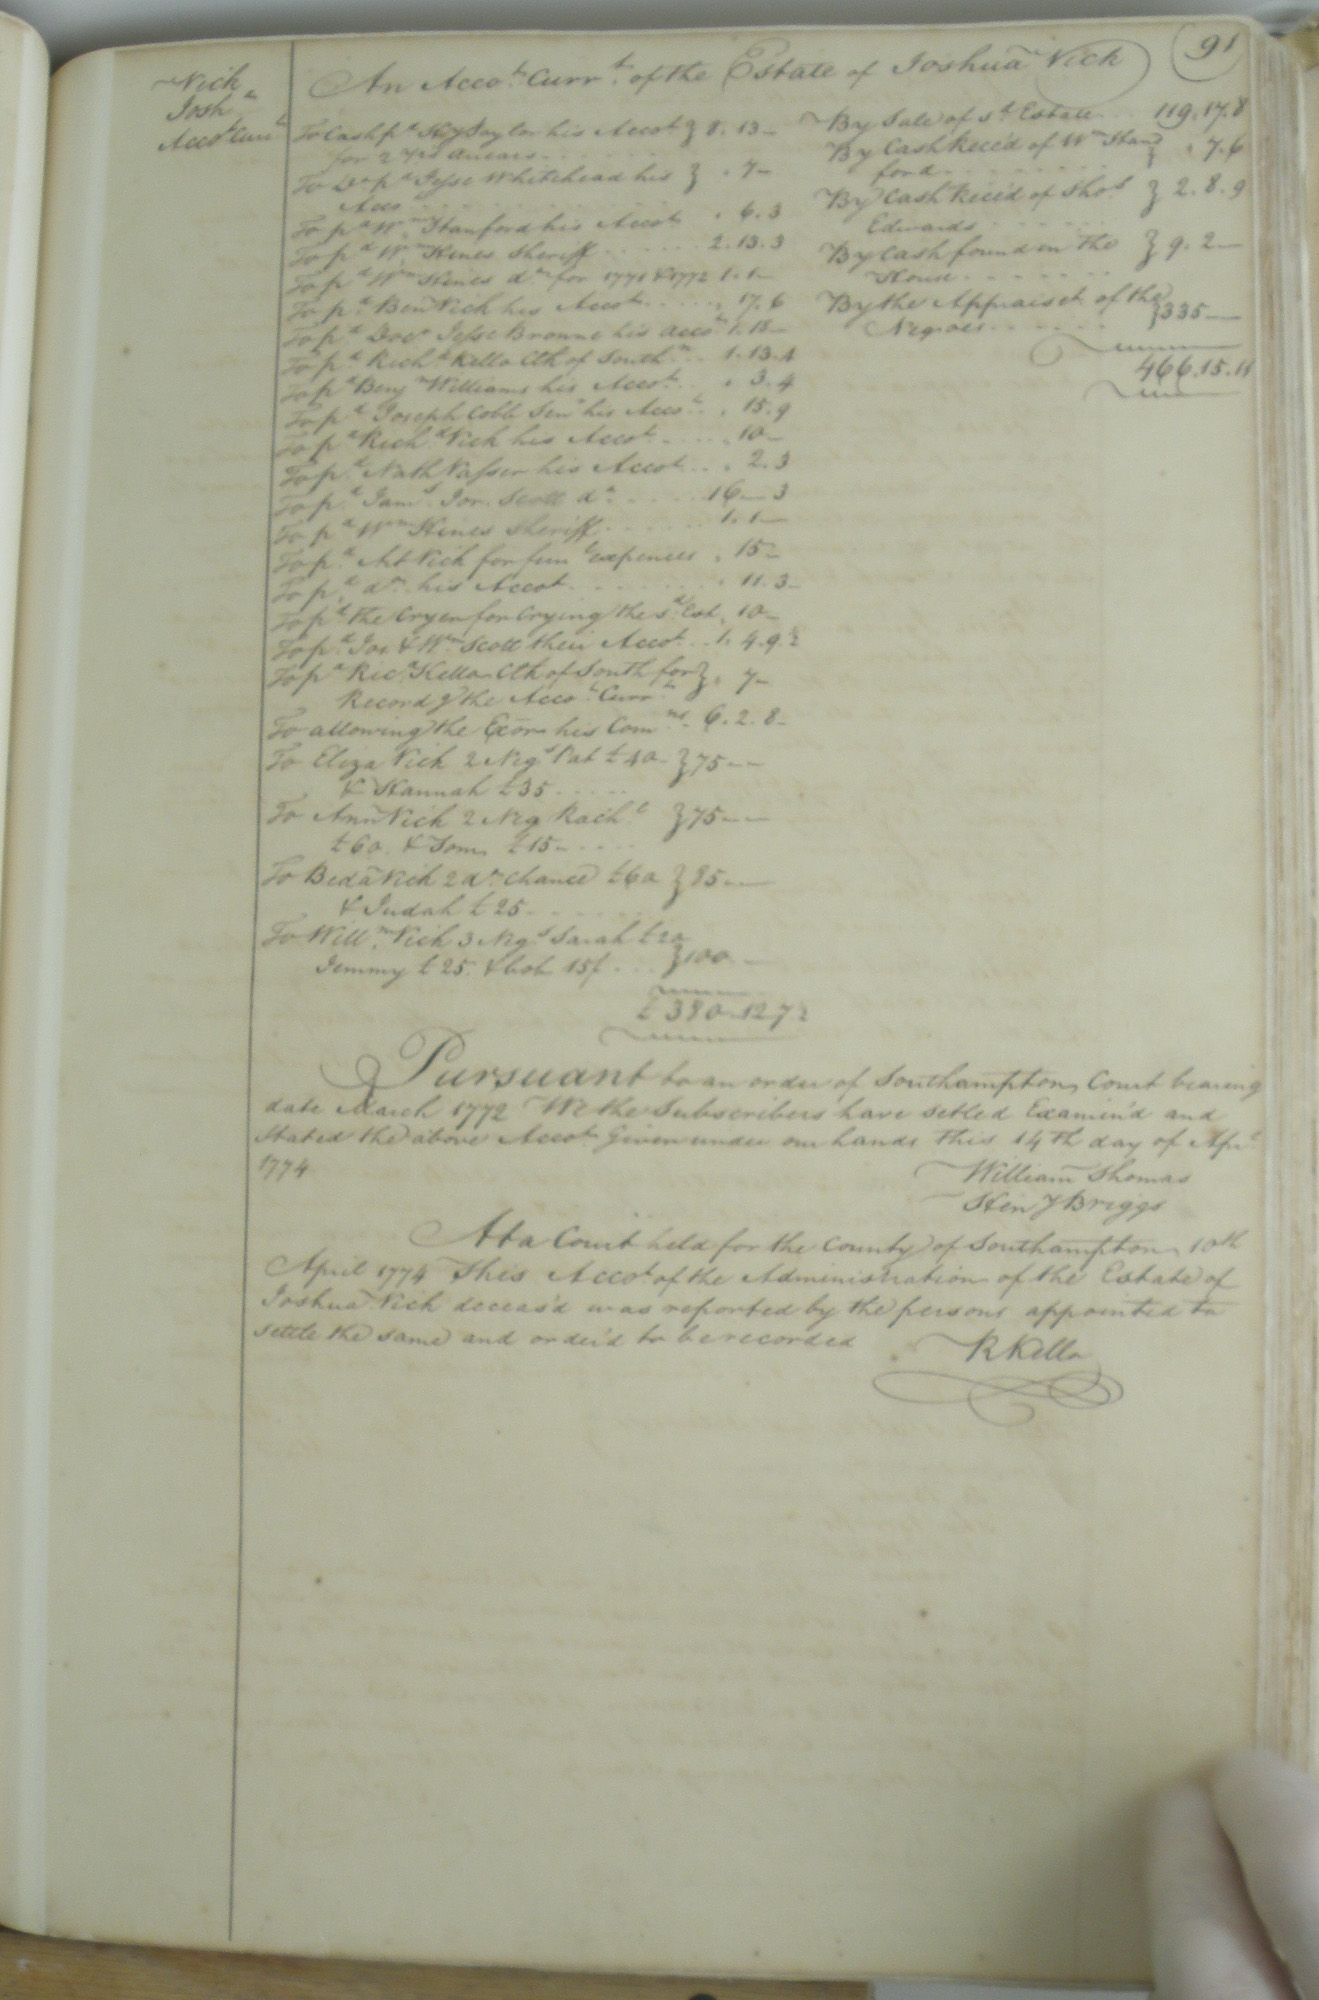 91
Nick
Josha
Accot Curt
An Accot. Currt. of the Estate of Joshua Nick
To Cash pd Hy Taylor his Accot } 8. 13 -
for 2 yrs arears
To Do pd Jesse Whitehead his } . 7 -
Acco
To pd Wm. Stanford his Accot . 6. 3
To pd Wm Hines Sheriff 2. 13. 3
To pd Wm Hines do for 1771 & 1772 1. 1 -
To pd Ben Nick his Accot 17. 6
To pd Docr Jesse Browne his accot 1. 15 -
To pd Richd Kello Clk of Southn 1. 13. 4
To pd Benjn Williams his Accot . 3. 4
To pd Joseph Cobb Senr his Accot . 15. 9
To pd Richd Nick his Accot . 10 -
To pd Nath Vasser his Accot . 2. 3
To pd Jams Jor. Scott do 16 - 3
To pd Wm Hines Sheriff 1. 1 -
To pd Art Nick for fun Expences . 15 -
To pd do his Accot . 11. 3 -
To pd the Cryer for Crying the sd Est . 10 -
To pd Jos & Wm Scott their Accot 1. 4. 9½
To pd Ricd Kello Clk of South for } . 7 -
Record g the Accot Currt
To allowing the Exor his Comns 6. 2. 8 -
To Eliza Nick 2 Negs Pat £40 } 75 - -
& Hannah £35
To Ann Nick 2 Neg Rachl } 75 - -
£60. & Tom £15 -
To Beda Nick 2 do Chance £60 } 85 - -
& Judah £25
To Willm Nick 3 Negs Sarah £20
Jemmy £25. & bob 15£ } 100 -
£380. 12. 7½
By Sale of sd Estate 119. 17. 8
By Cash Reced of Wm Stan } . 7. 6
ford
By Cash Receed of Thos } 2. 8. 9
Edwards
By Cash found in the } 9. 2 -
House
By the Appraiset of the } 335 -
Negroes
466. 15. 11
Pursuant to an order of Southampton Court bearing
date March 1772 We the Subscribers have settled Examin'd and
Stated the above Accot Given under our hands this 14th day of Aprl
1774
William Thomas
Heny Briggs
At a Court held for the County of Southampton 10th
April 1774 This Accot of the Administration of the Estate of
Joshua Nick deceas'd was reported by the persons appointed to
settle the same and order'd to be recorded
R Kello